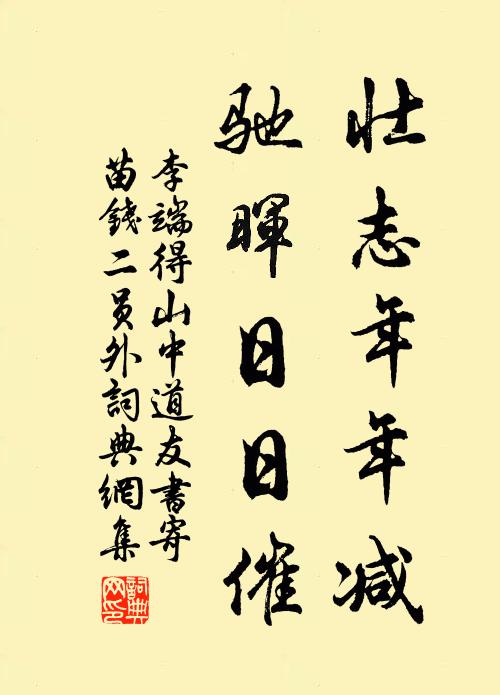 壮志年年减
馳暉日日催
李端得山中道友書寄
苗錢二員外詞典網集
詞典
网印